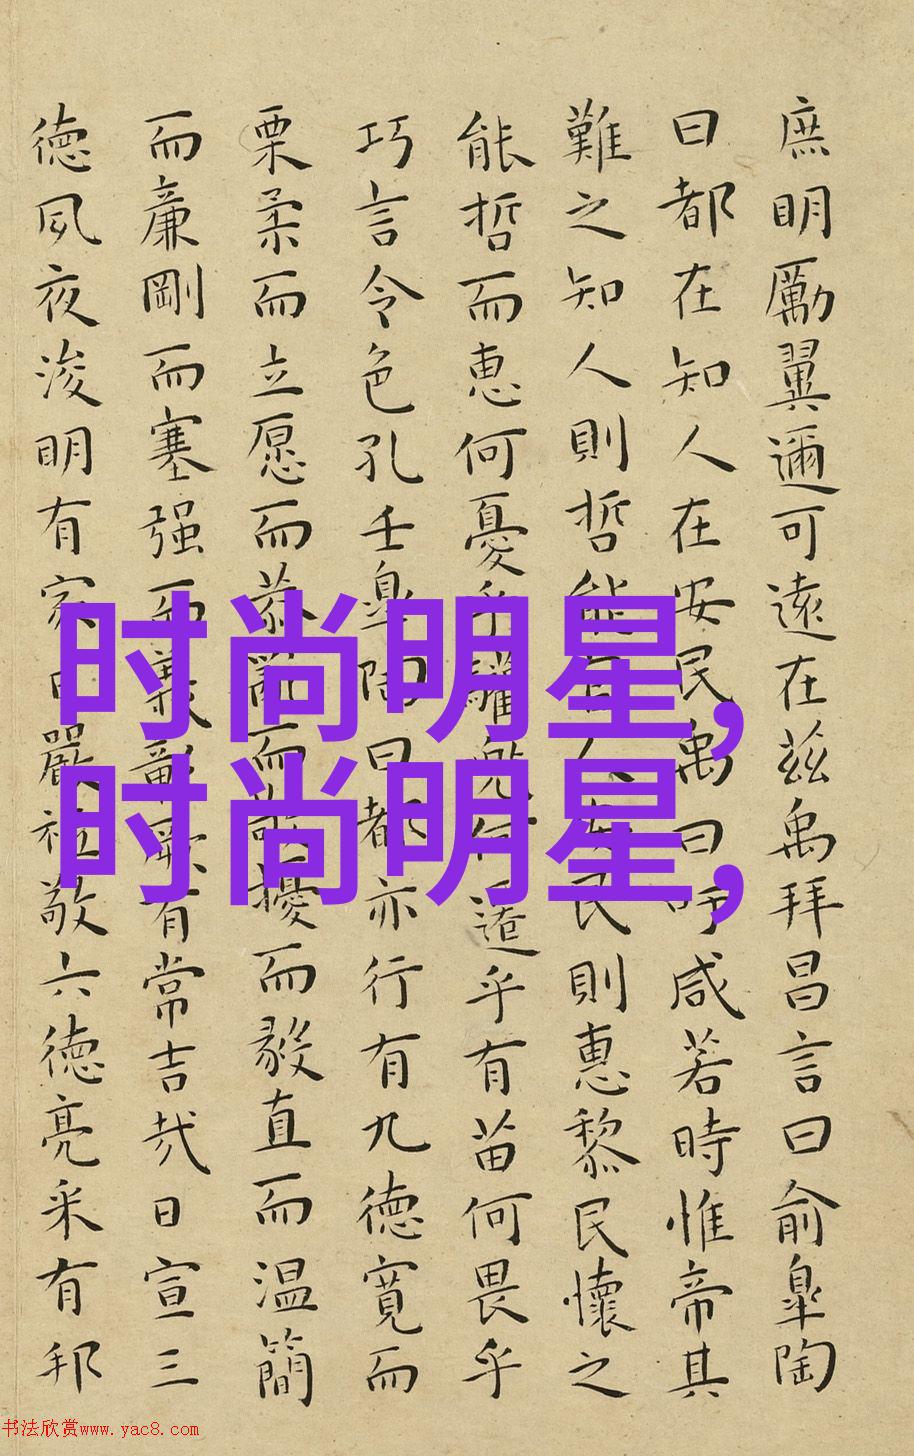 庶明勵翼邇可遠在茲禹拜昌言曰俞臯陶
曰都在知人在安民禹曰吁咸若時惟帝其
難之知人則哲能官人安民則惠黎民懷之
能哲而惠何憂乎驩兜何遷乎有苗何畏乎
巧言令色孔壬臯陶曰都亦行有九德寬而
栗柔而立愿而恭亂而敬擾而毅直而温簡
而廉剛而塞强而義彰厥有常吉哉日宣三
德夙夜浚明有家日嚴祗敬六德亮采有邦
时尚明星,
时尚明星,
书法欣赏www.yac8.com